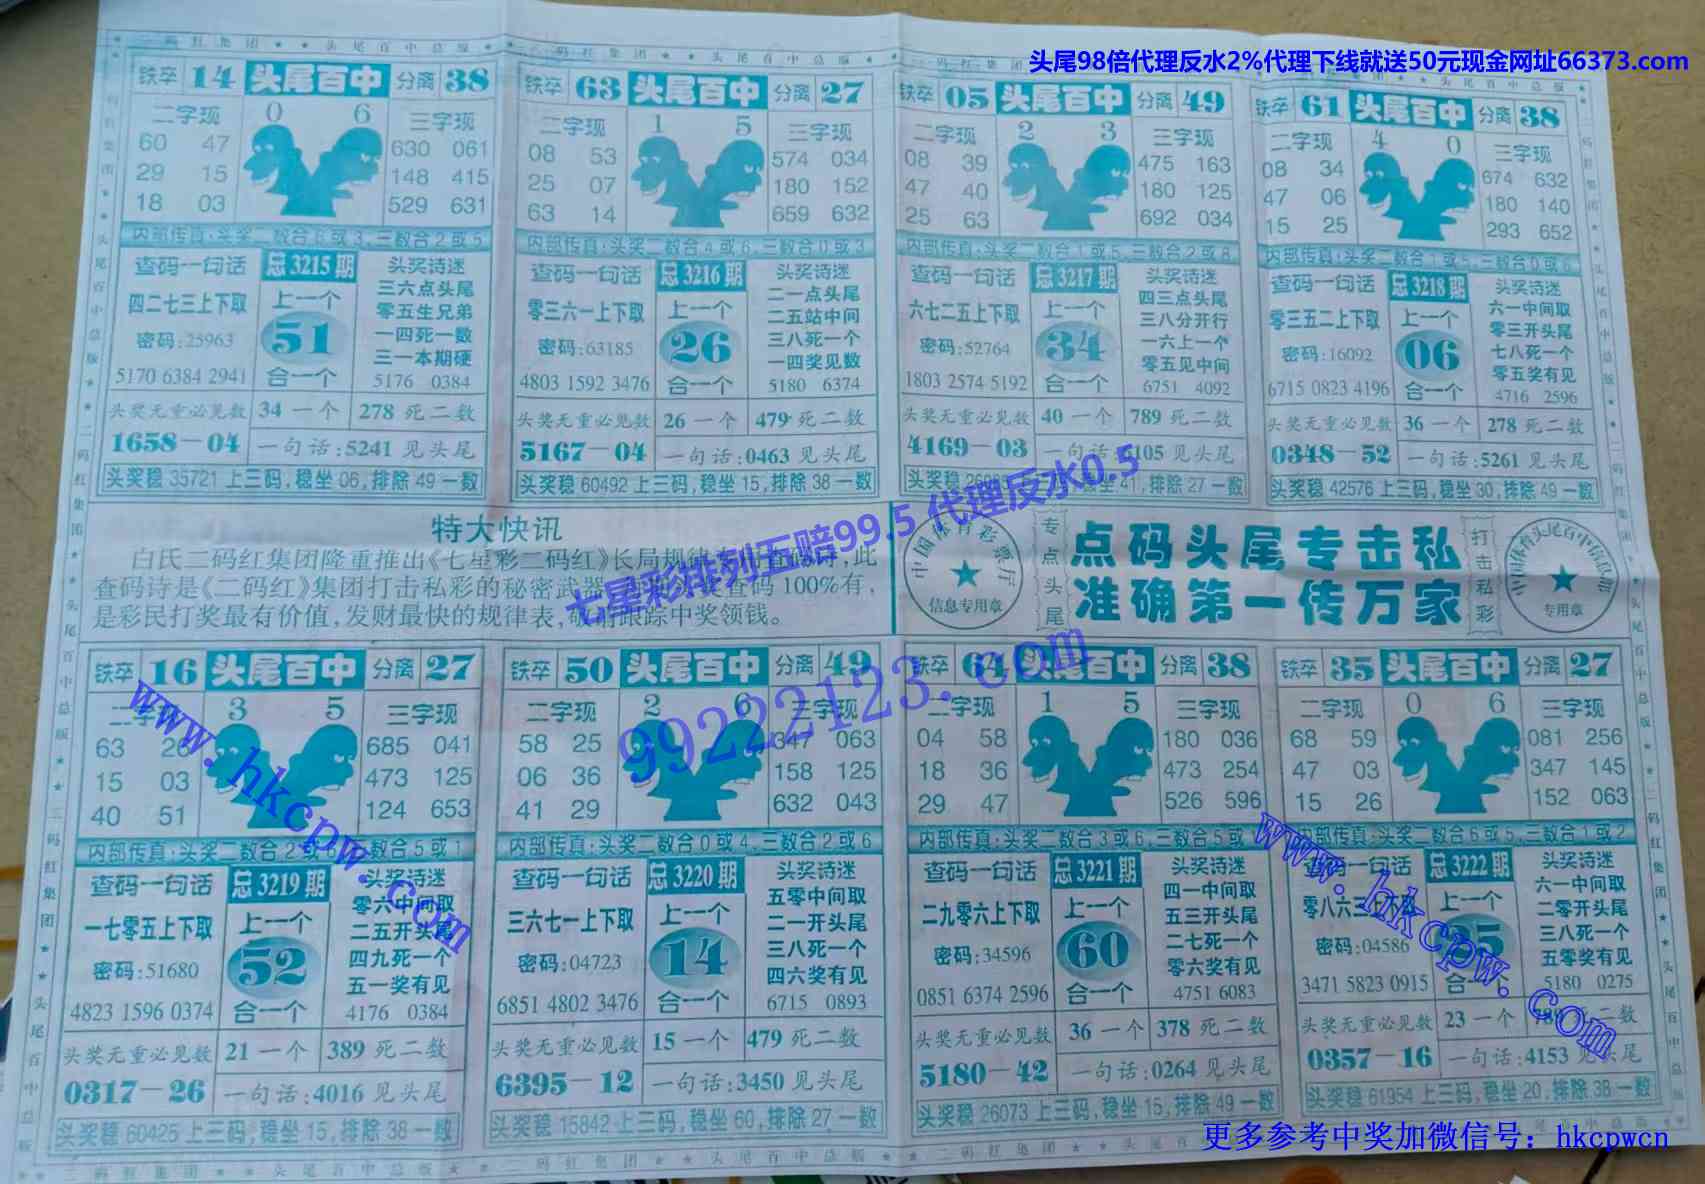 头尾98倍代理反水2%代理下线就送50元现金网址66373.com
铁卒 14 头尾百中 分离 38
二字现 0 6 三字现
60 47 630 061
29 15 148 415
18 03 529 631
内部传真:头奖二数合6或3,三数合2或5
查码一句话 总3215期 头奖诗迷
四二七三上下取 上一个 三六点头尾
零五生兄弟
密码:25963 51 一四死一数
三一本期硬
5170 6384 2941 合一个 5176 0384
头奖无重必见数 34一个 278死二数
1658-04 一句话:5241见头尾
头奖稳35721上三码,稳坐06,排除49一数
铁卒 63 头尾百中 分离 27
二字现 1 5 三字现
08 53 574 034
25 07 180 152
63 14 659 632
内部传真:头奖二数合4或6,三数合0或3
查码一句话 总3216期 头奖诗迷
零三六一上下取 上一个 二一点头尾
二五站中间
密码:63185 26 三八死一个
一四奖见数
4803 1592 3476 合一个 5180 6374
头奖无重必见数 26一个 479死二数
5167-04 一句话:0463见头尾
头奖稳60492上三码,稳坐15,排除38一数
铁卒 05 头尾百中 分离 49
二字现 2 3 三字现
08 39 475 163
47 40 180 125
25 63 692 034
内部传真:头奖二数合1或5,三数合2或8
查码一句话 总3217期 头奖诗迷
六七二五上下取 上一个 四三点头尾
三八分开行
密码:52764 34 一六上一个
零五见中间
1803 2574 5192 合一个 6751 4092
头奖无重必见数 40一个 789死二数
4169-03 一句话: 105见头尾
头奖稳 41,排除27一数
铁卒 61 头尾百中 分离 38
二字现 4 0 三字现
08 34 674 632
47 06 180 140
15 25 293 652
内部传真:头奖二数合1或5,三数合0或6
查码一句话 总3218期 头奖诗迷
零三五二上下取 上一个 六一中间取
零三开头尾
密码:16092 06 七八死一个
零五奖有见
6715 0823 4196 合一个 4716 2596
头奖无重必见数 36一个 278死二数
0348-52 一句话:5261见头尾
头奖稳42576上三码,稳坐30,排除49一数
特大快讯
白氏二码红集团隆重推出《七星彩二码红》长局规律 此
查码诗是《二码红》集团打击私彩的秘密武器 查码100%有,
是彩民打奖最有价值,发财最快的规律表,敬请跟踪中奖领钱。
七星彩排列五赔99.5 代理反水0.5
中国体育彩票厅
信息专用章
专点头尾
点码头尾专击私
准确第一传万家
打击私彩
专用章
99222123.com
铁卒 16 头尾百中 分离 27
二字现 3 5 三字现
63 26 685 041
15 03 473 125
40 51 124 653
内部传真:头奖二数合2或6,三数合5或1
查码一句话 总3219期 头奖诗迷
一七零五上下取 上一个 零六中间取
二五开头尾
密码:51680 52 四九死一个
五一奖有见
4823 1596 0374 合一个 4176 0384
头奖无重必见数 21一个 389死二数
0317-26 一句话:4016见头尾
头奖稳60425上三码,稳坐15,排除38一数
铁卒 50 头尾百中 分离 49
二字现 2 6 三字现
58 25 347 063
06 36 158 125
41 29 632 043
内部传真:头奖二数合0或4,三数合2或6
查码一句话 总3220期 头奖诗迷
三六七一上下取 上一个 五零中间取
二一开头尾
密码:04723 14 三八死一个
四六奖有见
6851 4802 3476 合一个 6715 0893
头奖无重必见数 15一个 479死二数
6395-12 一句话:3450见头尾
头奖稳15842上三码,稳坐60,排除27一数
铁卒 64 头尾百中 分离 38
二字现 1 5 三字现
04 58 180 036
18 36 473 254
29 47 526 596
内部传真:头奖二数合3或6,三数合5或
查码一句话 总3221期 头奖诗迷
二九零六上下取 上一个 四一中间取
五三开头尾
密码:34596 60 二七死一个
零六奖有见
0851 6374 2596 合一个 4751 6083
头奖无重必见数 36一个 378死二数
5180-42 一句话:0264见头尾
头奖稳26073上三码,稳坐15,排除49一数
铁卒 35 头尾百中 分离 27
二字现 0 6 三字现
68 59 081 256
47 03 347 145
15 26 152 063
内部传真:头奖二数合6或5,三数合1或2
查码一句话 总3222期 头奖诗迷
零八六三上下取 上一个 六一中间取
二零开头尾
密码:04586 三八死一个
五零奖有见
3471 5823 0915 合一个 5180 0275
头奖无重必见数 23一个 789死二数
0357-16 一句话:4153见头尾
头奖稳61954上三码,稳坐20,排除38一数
www.hkcpw.com
www.hkcpw.com
更多参考中奖加微信号：hkcpwcn